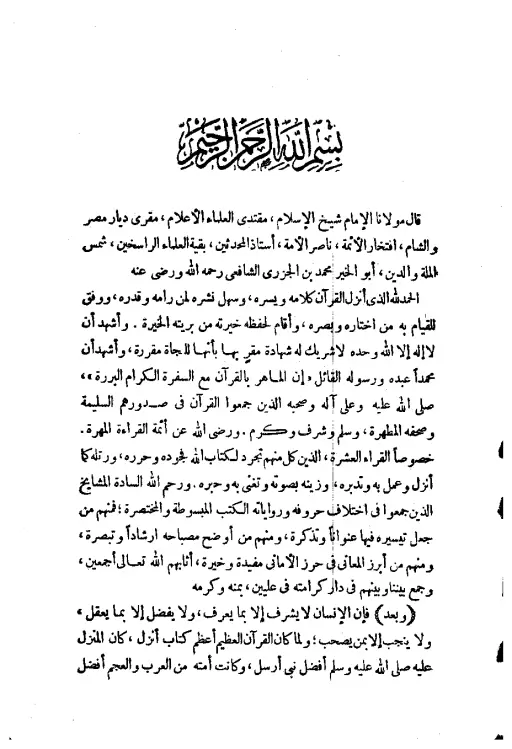 بسم الله الرحمن الرحيم
قال مولانا الإمام شيخ الإسلام، مقتدى العلماء الأعلام، مقرى ديار مصر
والشام، افتخار الأئمة، ناصر الأمة، أستاذ المحدثين، بقية العلماء الراسخين، شمس
الملة والدين، أبو الخير محمد بن الجزرى الشافعى رحمه الله ورضى عنه
الحمد لله الذى أنزل القرآن كلامه ويسره، وسهل نشره لمن رامه وقدره، ووفق
للقيام به من اختاره وبصره، وأقام لحفظه خيرته من بريته الخيرة. وأشهد أن
لا إله إلا الله وحده لا شريك له شهادة مقر بها بأنها للنجاة مقررة، وأشهد أن
محمداً عبده ورسوله القائل «إن الماهر بالقرآن مع السفرة الكرام البررة»،
صلى الله عليه وعلى آله وصحبه الذين جمعوا القرآن فى صدورهم السليمة
وصحفه المطهرة، وسلم وشرف وكرم. ورضى الله عن أئمة القراءة المهرة.
خصوصاً القراء العشرة، الذين كل منهم تجرد لكتاب الله فجوده وحرره، ورتله كما
أنزل وعمل به وتدبره، وزينه بصوته وتغنى به وحبره. ورحم الله السادة المشايخ
الذين جمعوا فى اختلاف حروفه ورواياته الكتب المبسوطة والمختصرة؛ فمنهم من
جعل تيسيره فيها عنواناً وتذكرة، ومنهم من أوضح مصباحه ارشاداً وتبصرة،
ومنهم من أبرز المعانى فى حرز الأمانى مفيدة وخيرة، أثابهم الله تعالى أجمعين،
وجمع بيننا وبينهم فى دار كرامته فى عليين، بمنه وكرمه
(وبعد) فإن الإنسان لا يشرف إلا بما يعرف، ولا يفضل إلا بما يعقل،
ولا ينجب إلا بمن يصحب؛ ولما كان القرآن العظيم أعظم كتاب أنزل، كان المنزل
عليه صلى الله عليه وسلم أفضل نبى أرسل، وكانت أمته من العرب والعجم أفضل